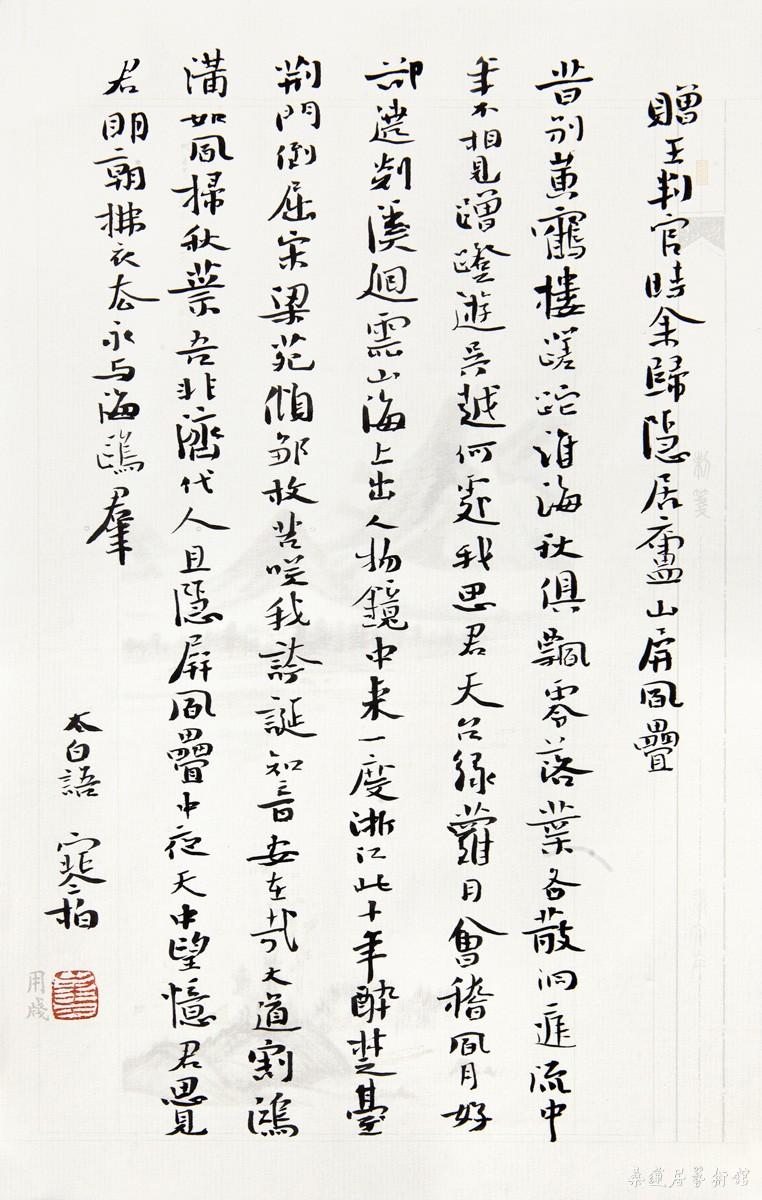 贈王判官時余歸隱居廬山屏風疊
昔別黃鶴樓蹉跎淮海秋俱飄零落葉各散洞庭流中
年不相見蹭蹬遊吳越何處我思君天台綠蘿月會稽風月好
卻遶剡溪迴雲山海上出人物鏡中來一度浙江北十年醉楚臺
荊門倒屈宋梁苑傾鄒枚苦咲我誇誕知音安在哉大道割鴻
溝如風掃秋葉吾非濟代人且隱屏風疊中夜天中望憶君思見
君明朝拂衣去永与海鷗羣
太白語 寒柏
桑蓮居藝術館